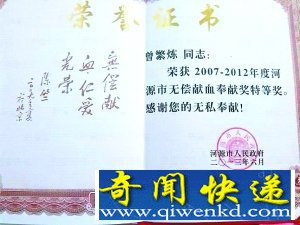 荣誉证书
無偿献
血仁爱
光荣
陈竺
曾繁炼 同志：
荣获 2007-2012年度河
源市无偿献血奉献奖特等奖。
感谢您的无私奉献！
河源市人民政府
二〇一三年六月
奇闻快递
www.qiwenkd.com